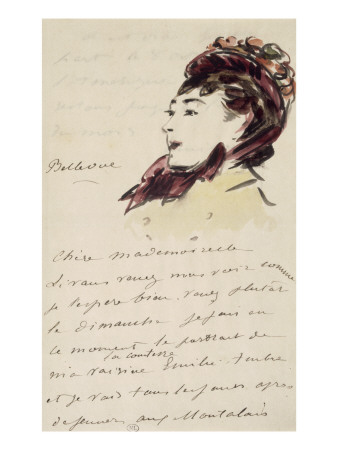 Bellevue
Chère mademoiselle
si vous venez nous voir comme
je l'espère bien. venez plutôt
le dimanche je fais en
ce moment le portrait de
la cantatrice
ma voisine Emilie Ambre
et je vais tous les jours après
déjeuner aux Montalais